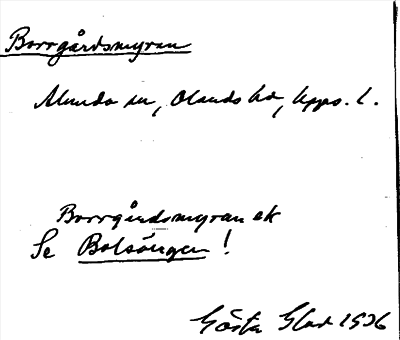 Borrgårdsmyran
Alunda sn, Olands hd, Upps. l.
Borrgårdsmyran ek
Se Bolsängen !
Gösta Glad 1936